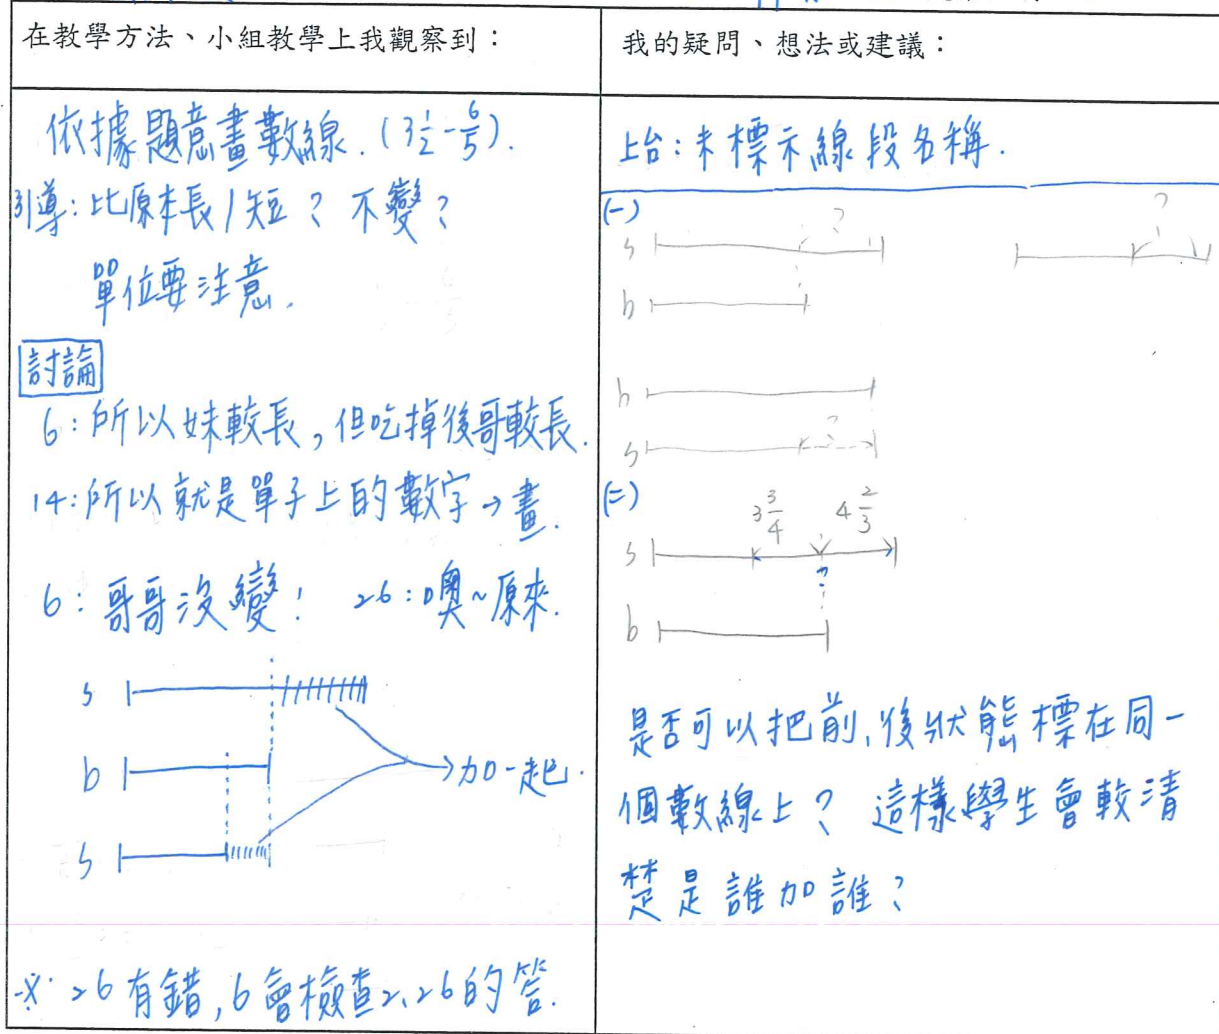 在教學方法、小組教學上我觀察到：
依據題意畫數線.(3½-6/5).
引導:比原本長/短? 不變?
單位要注意.
討論
6:所以妹較長,但吃掉後哥較長.
14:所以就是單子上的數字→畫.
6:哥哥沒變! 26:噢~原來.
s
b →加一起.
s
※ 26有錯,6會檢查2、26的答.
我的疑問、想法或建議：
上台:未標示線段名稱.
(一)
s ? ?
b
b
s ?
(二)
3 3/4 4 2/3
s
?
b
是否可以把前、後狀態標在同一
個數線上? 這樣學生會較清
楚是誰加誰?